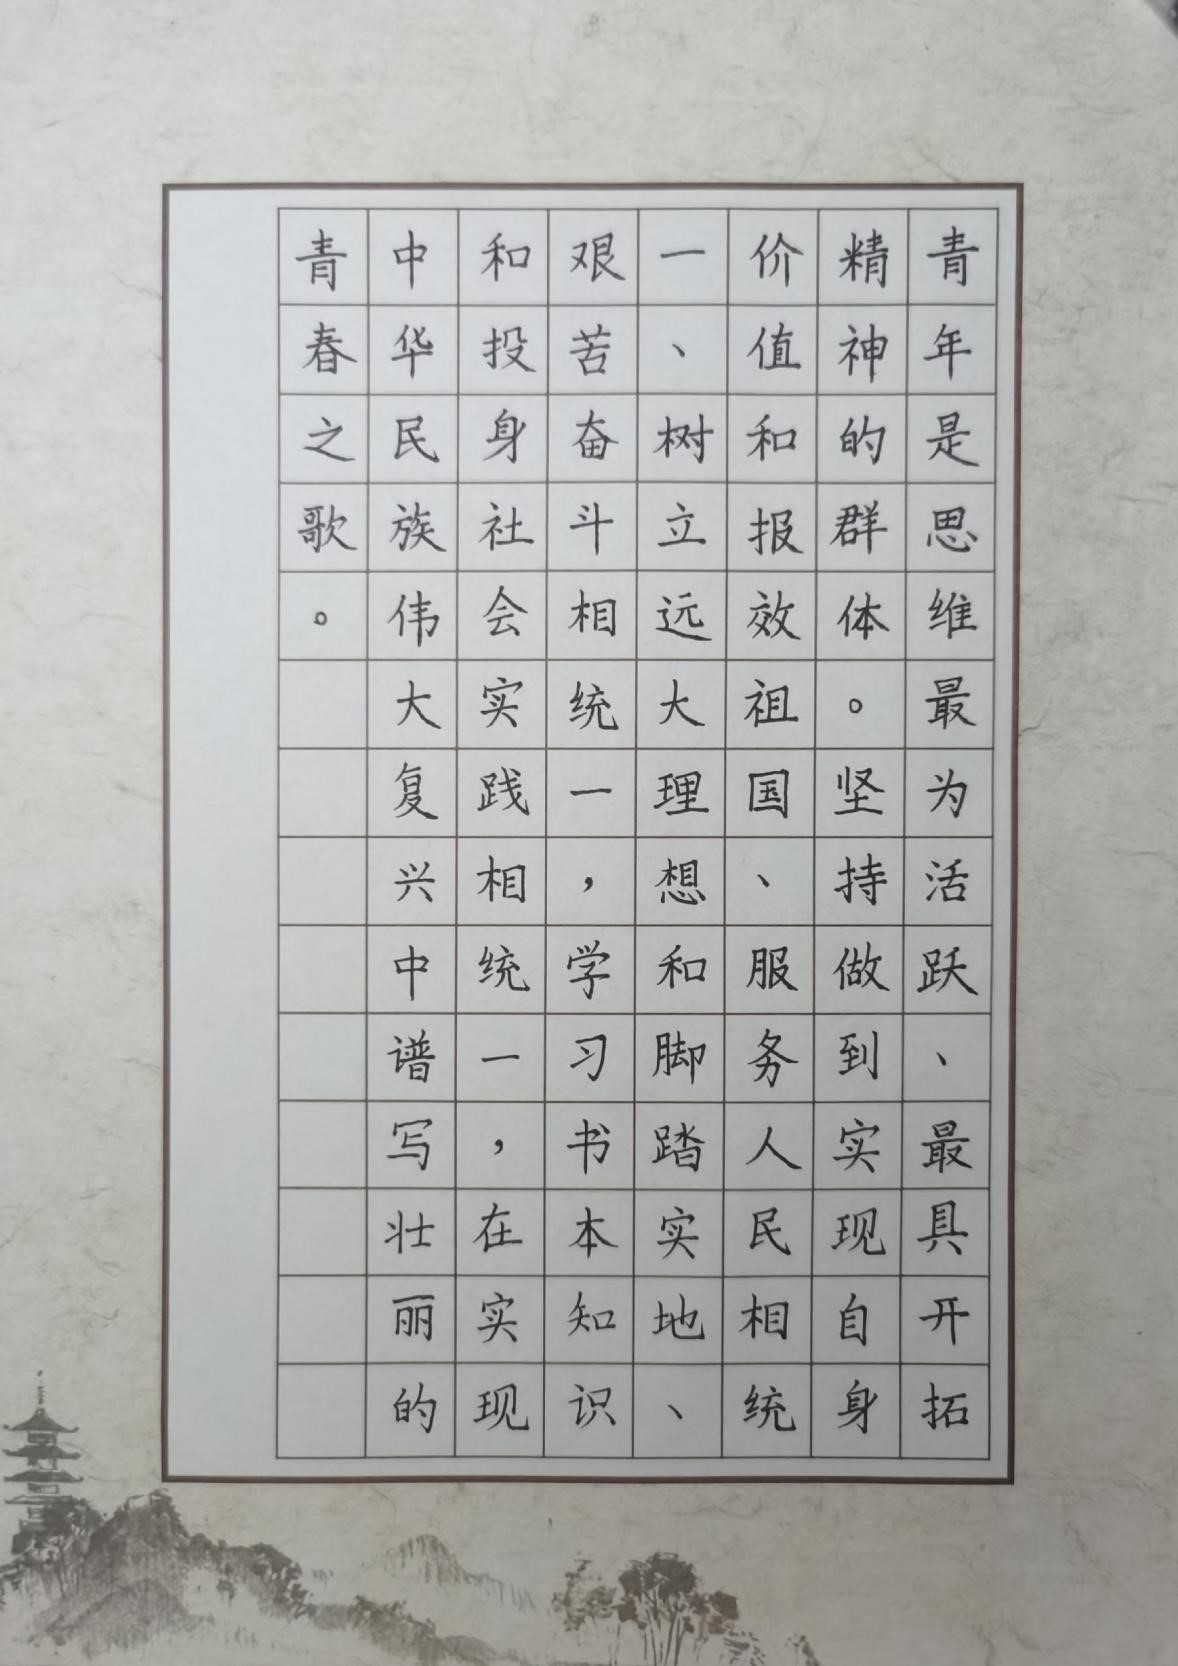 青年是思维最为活跃、最具开拓
精神的群体。坚持做到实现自身
价值和报效祖国、服务人民相统
一、树立远大理想和脚踏实地、
艰苦奋斗相统一，学习书本知识
和投身社会实践相统一，在实现
中华民族伟大复兴中谱写壮丽的
青春之歌。